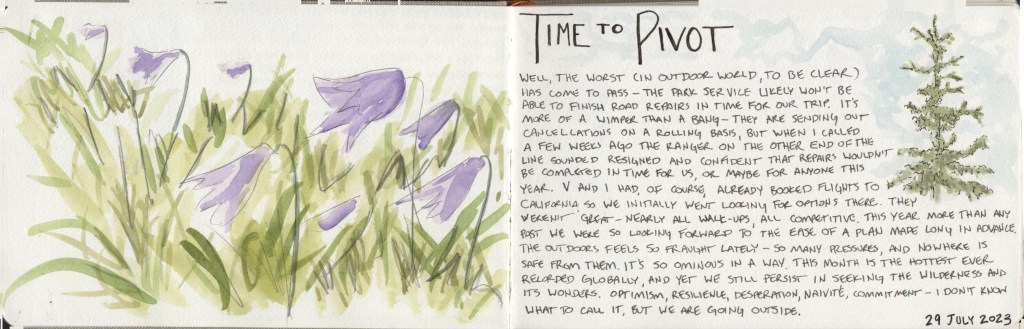 TIME TO PIVOT
WELL, THE WORST (IN OUTDOOR WORLD, TO BE CLEAR)
HAS COME TO PASS – THE PARK SERVICE LIKELY WON'T BE
ABLE TO FINISH ROAD REPAIRS IN TIME FOR OUR TRIP. IT'S
MORE OF A WIMPER THAN A BANG – THEY ARE SENDING OUT
CANCELLATIONS ON A ROLLING BASIS, BUT WHEN I CALLED
A FEW WEEKS AGO THE RANGER ON THE OTHER END OF THE
LINE SOUNDED RESIGNED AND CONFIDENT THAT REPAIRS WOULDN'T
BE COMPLETED IN TIME FOR US, OR MAYBE FOR ANYONE THIS
YEAR. V AND I HAD, OF COURSE, ALREADY BOOKED FLIGHTS TO
CALIFORNIA SO WE INITIALLY WENT LOOKING FOR OPTIONS THERE. THEY
WEREN'T GREAT – NEARLY ALL WALK-UPS, ALL COMPETITIVE. THIS YEAR MORE THAN ANY
PAST WE WERE SO LOOKING FORWARD TO THE EASE OF A PLAN MADE LONG IN ADVANCE.
THE OUTDOORS FEELS SO FRAUGHT LATELY – SO MANY PRESSURES, AND NOWHERE IS
SAFE FROM THEM. IT'S SO OMINOUS IN A WAY. THIS MONTH IS THE HOTTEST EVER
RECORDED GLOBALLY, AND YET WE STILL PERSIST IN SEEKING THE WILDERNESS AND
ITS WONDERS. OPTIMISM, RESILIENCE, DESPERATION, NAIVITÉ, COMMITMENT – I DON'T KNOW
WHAT TO CALL IT, BUT WE ARE GOING OUTSIDE.
29 JULY 2023